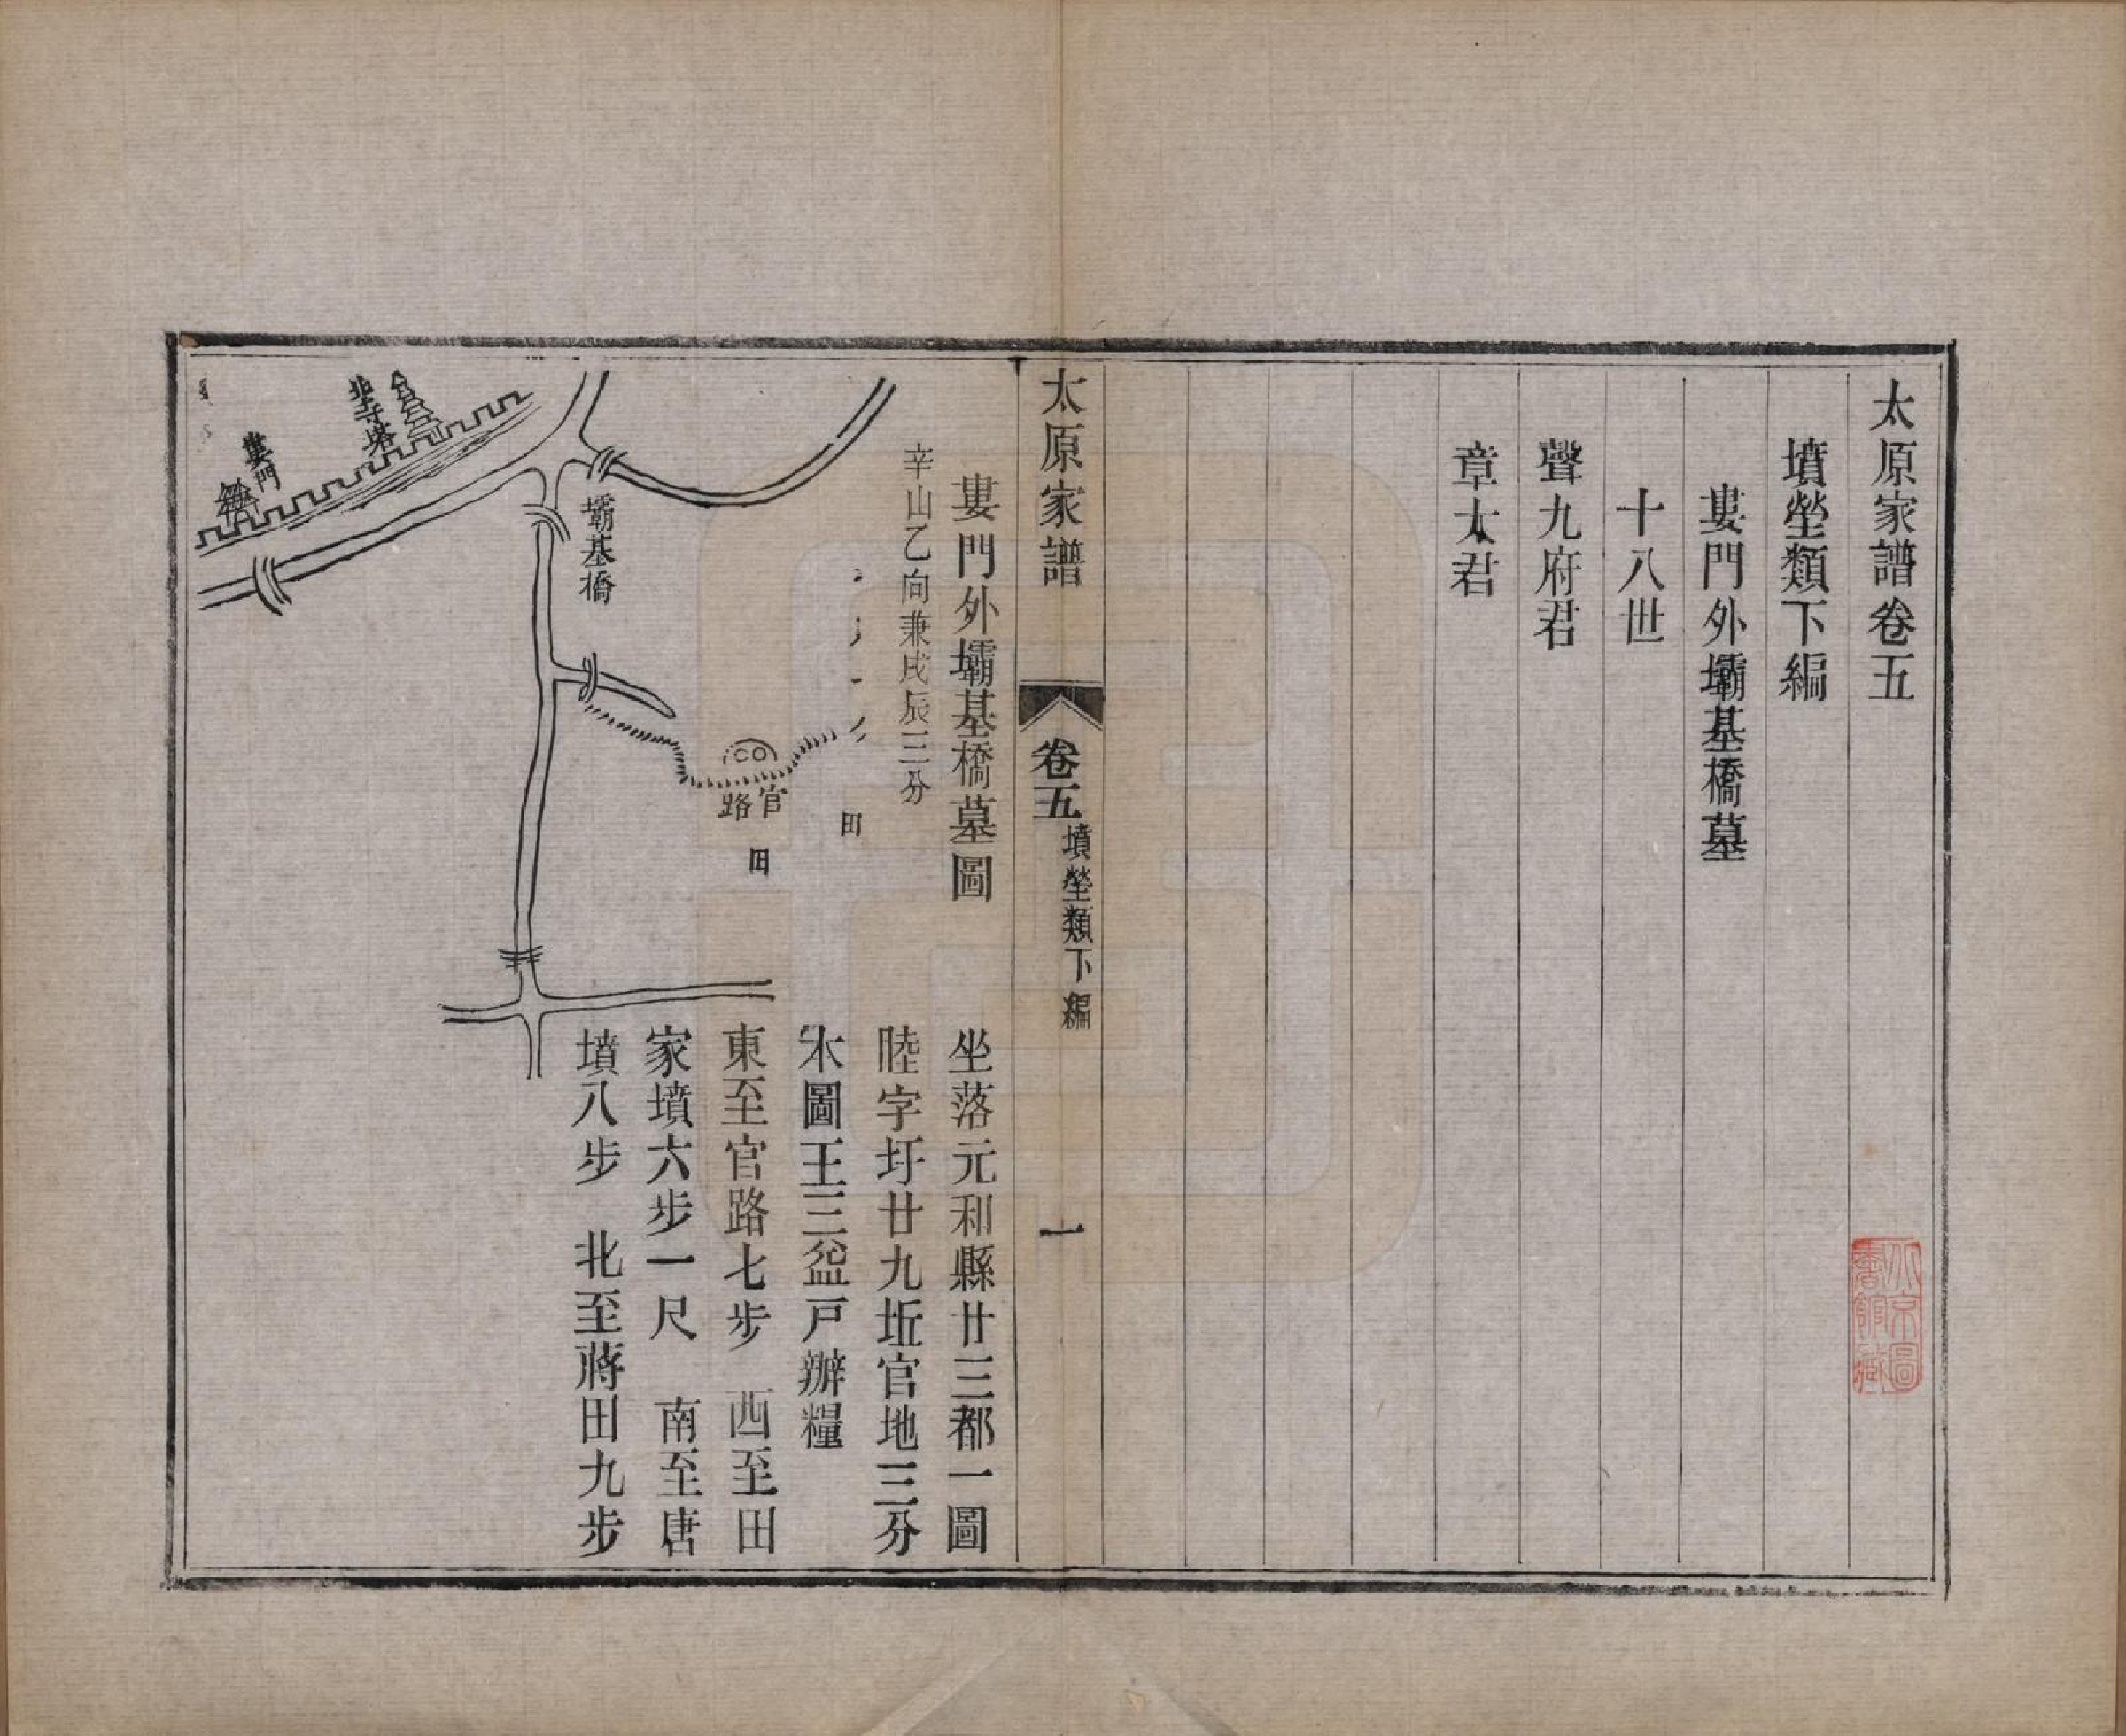 太原家譜卷五
墳塋類下編
婁門外壩基橋墓
十八世
聲九府君
章太君
太原家譜
卷五
墳塋類下編
一
婁門外壩基橋墓圖
辛山乙向兼戌辰三分
坐落元和縣廿三都一圖
陸字圩廿九坵官地三分
圖王三益戸辦糧
東至官路七步 西至田
家墳六步一尺 南至唐
墳八步 北至蔣田九步
官路
田
田
壩基橋
北寺塔
婁門